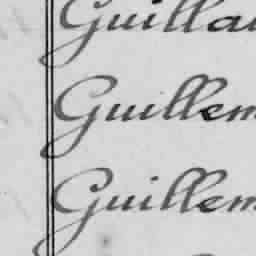 Guillau
Guillem
Guillem